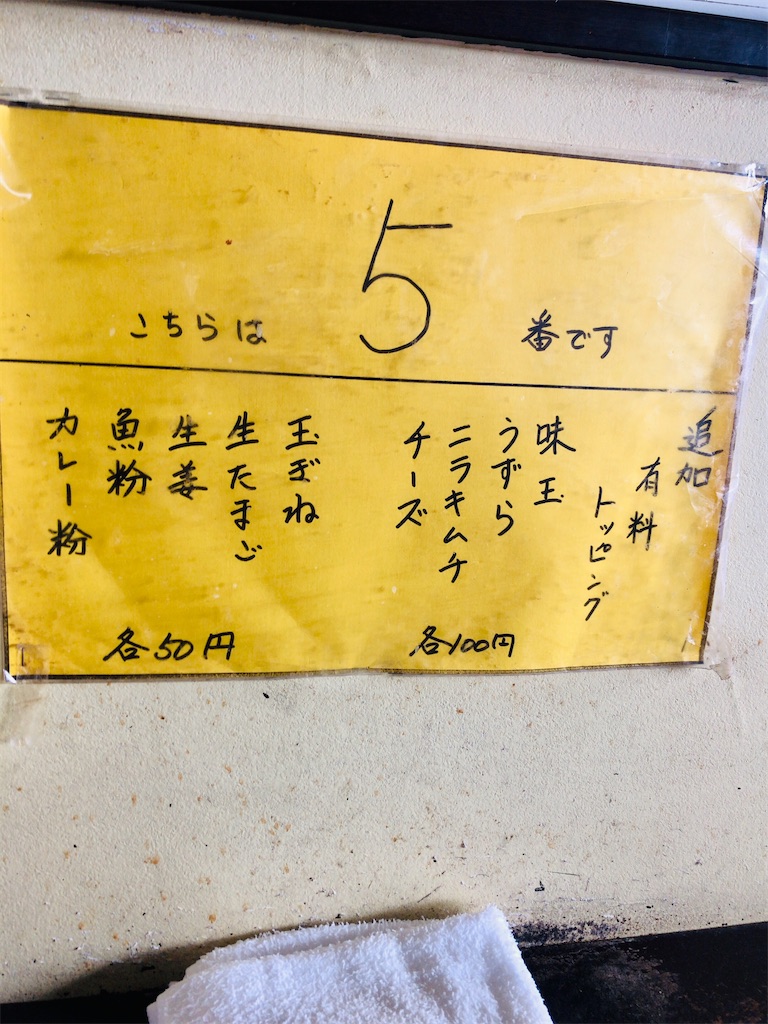 こちらは 5 番です
追加
有料
トッピング
味玉
うずら
ニラキムチ
チーズ
各100円
玉ぎね
生たまご
生姜
魚粉
カレー粉
各50円